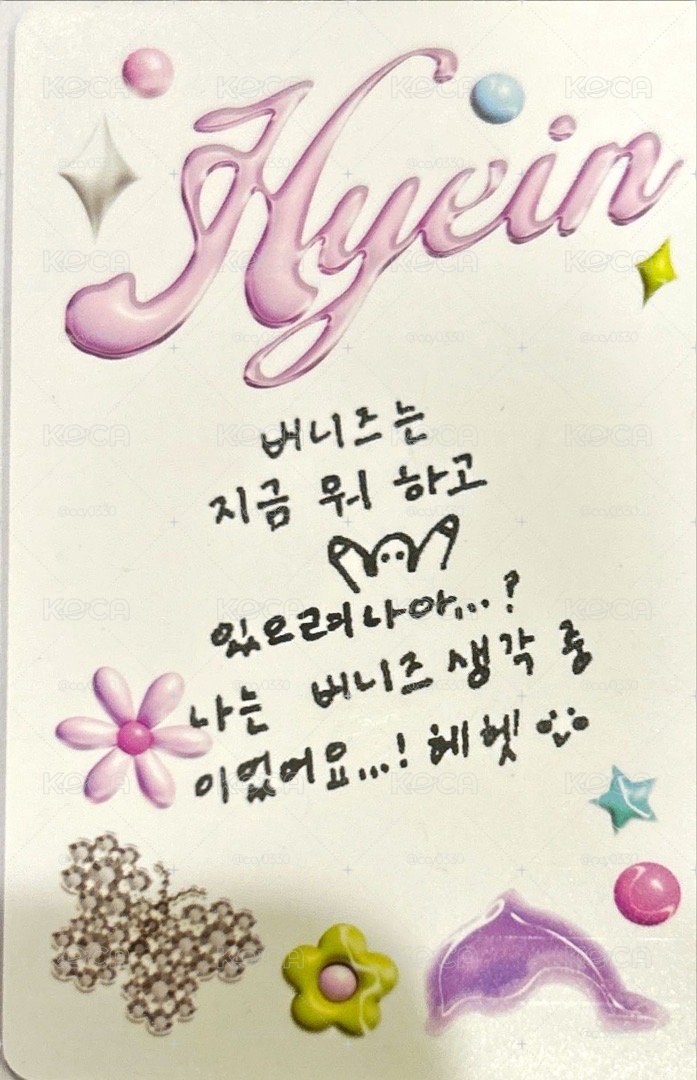 Hyein
버니즈는
지금 뭐 하고
있으려나아...?
나는 버니즈 생각 중
이었어요...! 헤헷
KOCA
@cay0330